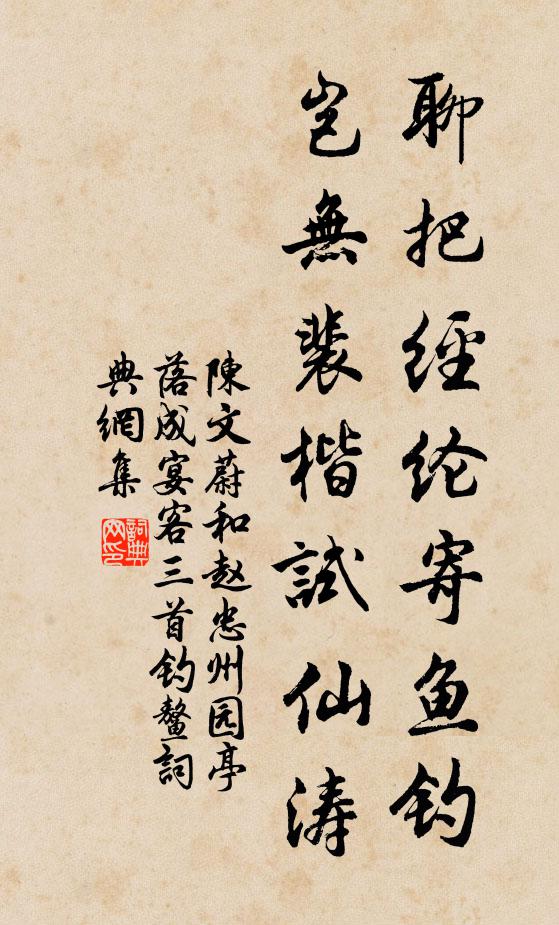 聊把經纶寄鱼钓
岂無裴楷試仙涛
陳文蔚和赵忠州园亭
落成宴客三首钓鳌詞
典網集
詞典
网印